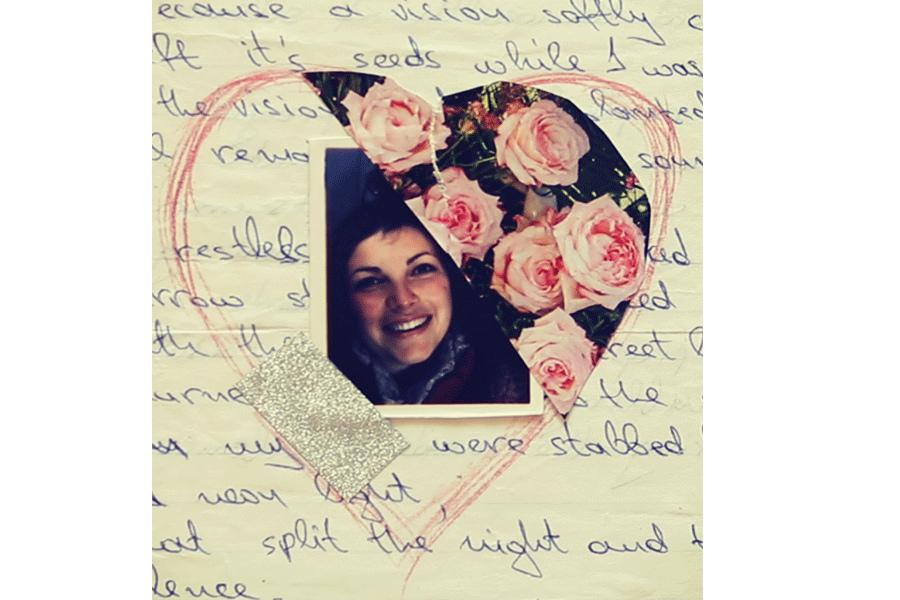 ecause a vision softly c
ft it's seeds while I was
the visio planted
rema soun
restless ked
rrow st ed
th the reet
urne the
my were stabbed
neon light,
at split the night and t
lence.